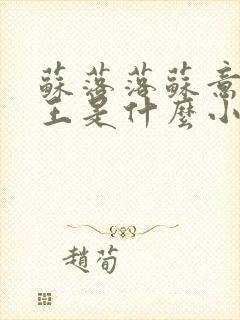 蘇落落蘇意
主是什麼小
趙荀